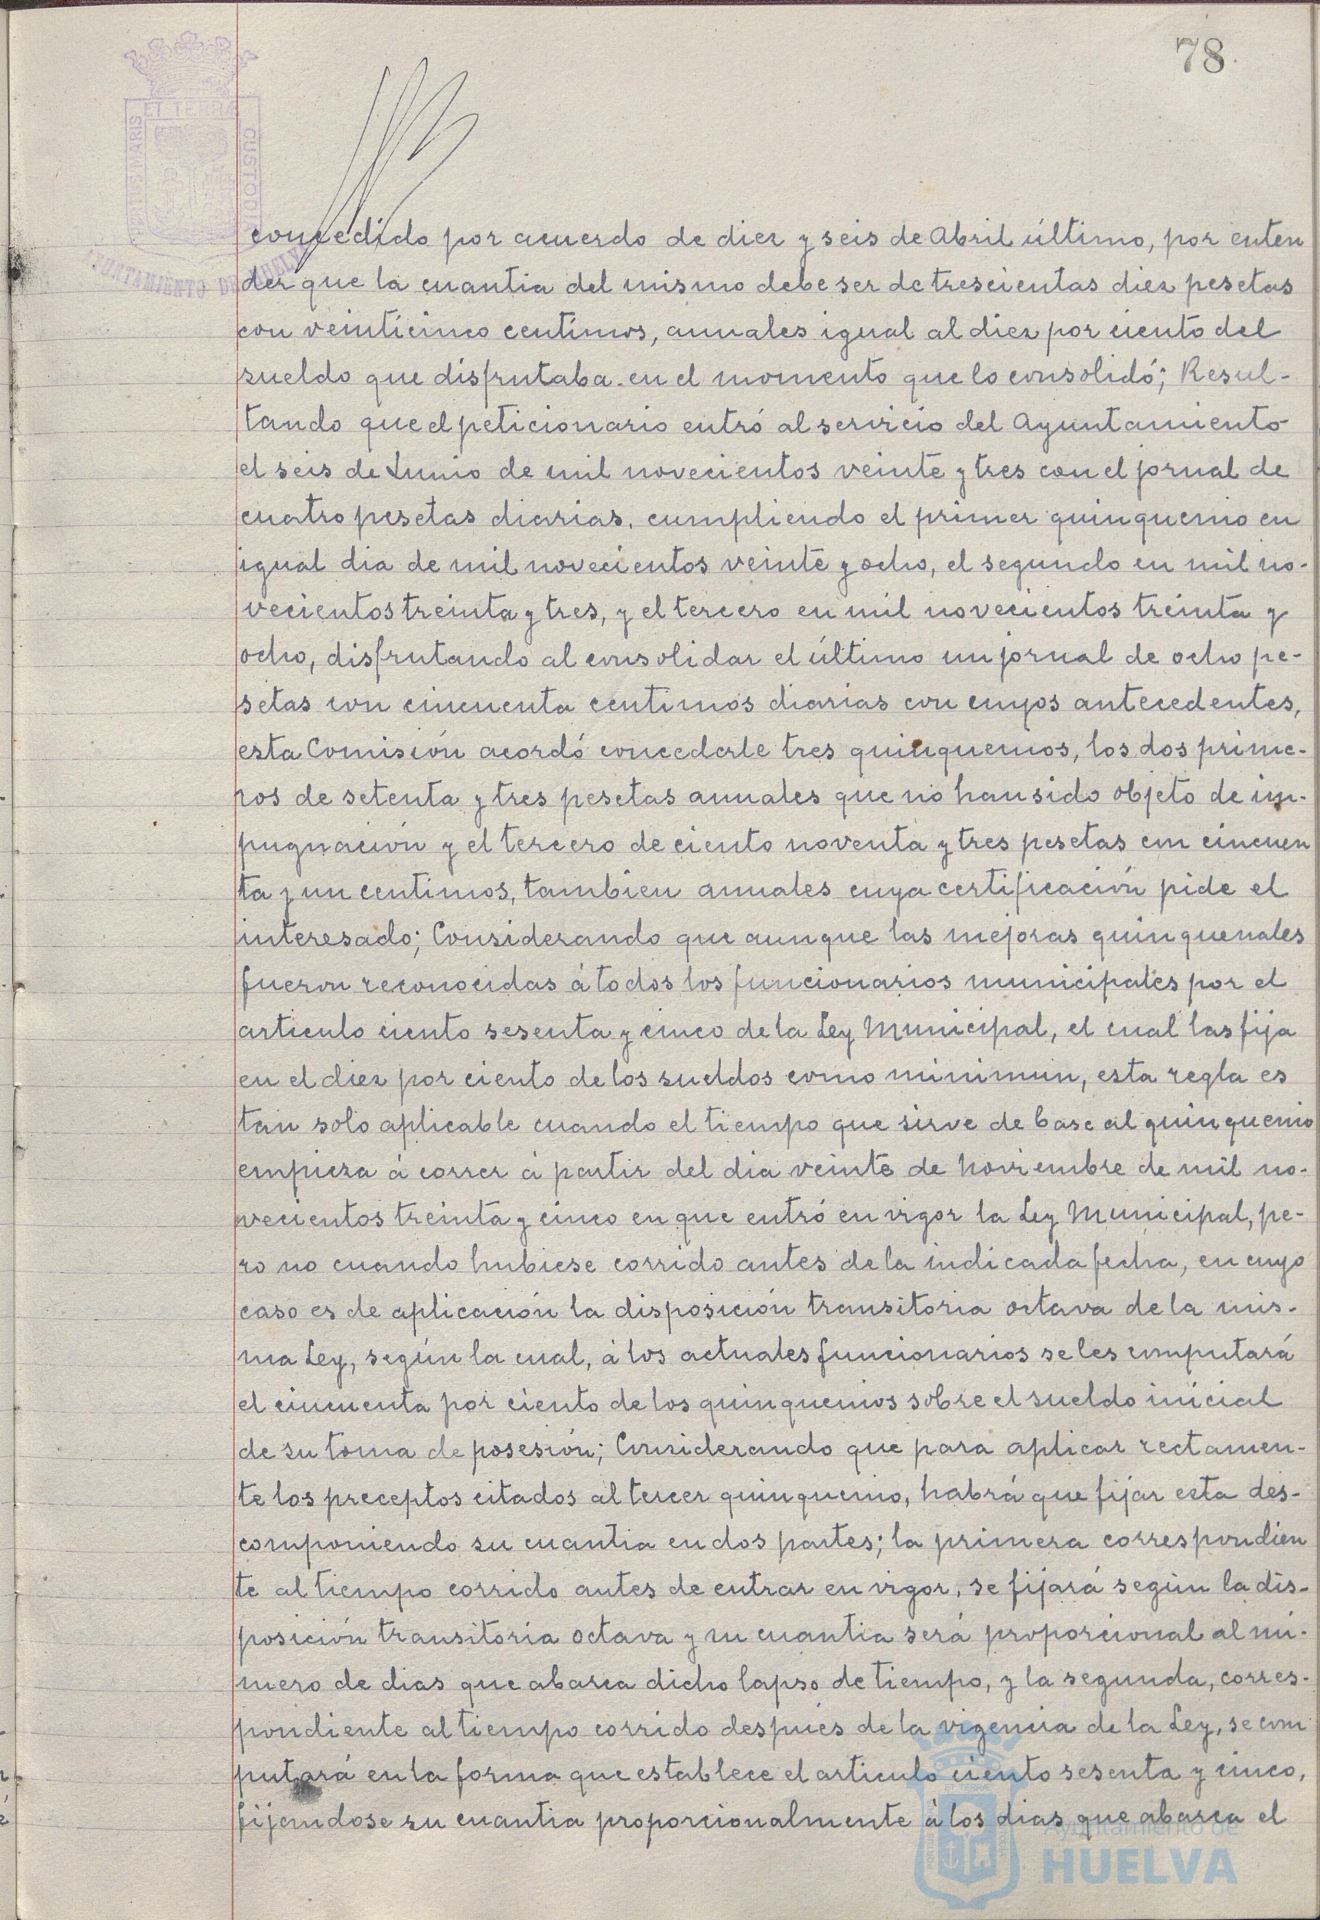 78
PORTUS MARIS ET TERRAE CUSTODIA
AYUNTAMIENTO DE HUELVA
concedido por acuerdo de diez y seis de Abril último, por enten
der que la cuantia del mismo debe ser de trescientas diez pesetas
con veinticinco centimos, anuales igual al diez por ciento del
sueldo que disfrutaba en el momento que lo consolidó; Resul-
tando que el peticionario entró al servicio del Ayuntamiento
el seis de Junio de mil novecientos veinte y tres con el jornal de
cuatro pesetas diarias, cumpliendo el primer quinquenio en
igual dia de mil novecientos veinte y ocho, el segundo en mil no-
vecientos treinta y tres, y el tercero en mil novecientos treinta y
ocho, disfrutando al consolidar el último un jornal de ocho pe-
setas con cincuenta centimos diarias con cuyos antecedentes,
esta Comisión acordó concederle tres quinquenios, los dos prime-
ros de setenta y tres pesetas anuales que no han sido objeto de im-
pugnación y el tercero de ciento noventa y tres pesetas con cincuen
ta y un centimos, tambien anuales cuya certificación pide el
interesado; Considerando que aunque las mejoras quinquenales
fueron reconocidas á todos los funcionarios municipales por el
articulo ciento sesenta y cinco de la Ley Municipal, el cual las fija
en el diez por ciento de los sueldos como minimun, esta regla es
tan solo aplicable cuando el tiempo que sirve de base al quinquenio
empieza á correr á partir del dia veinte de Noviembre de mil no-
vecientos treinta y cinco en que entró en vigor la Ley Municipal, pe-
ro no cuando hubiese corrido antes de la indicada fecha, en cuyo
caso es de aplicación la disposición transitoria octava de la mis-
ma Ley, según la cual, á los actuales funcionarios se les computará
el cincuenta por ciento de los quinquenios sobre el sueldo inicial
de su toma de posesión; Considerando que para aplicar rectamen-
te los preceptos citados al tercer quinquenio, habrá que fijar esta des-
componiendo su cuantia en dos partes; la primera correspondien
te al tiempo corrido antes de entrar en vigor, se fijará según la dis-
posición transitoria octava y su cuantia será proporcional al nú-
mero de dias que abarca dicho lapso de tiempo, y la segunda, corres-
pondiente al tiempo corrido después de la vigencia de la Ley, se com
putará en la forma que establece el articulo ciento sesenta y cinco,
fijendose su cuantia proporcionalmente á los dias que abarca el
Ayuntamiento de
HUELVA